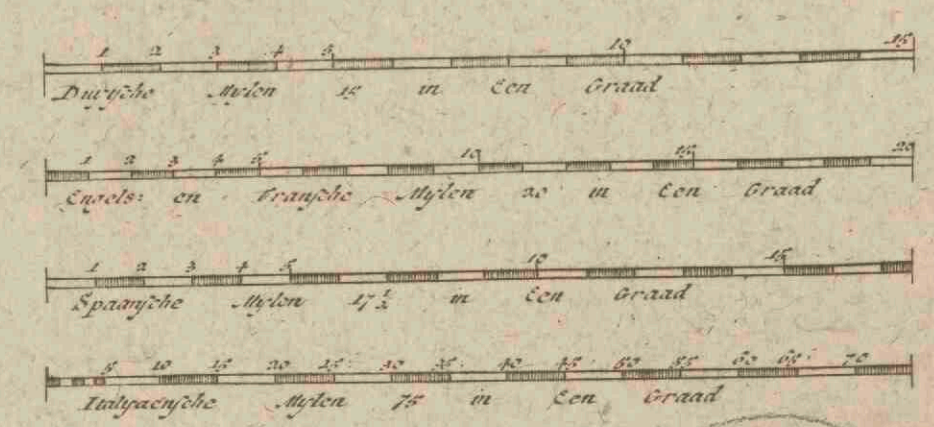 1 2 3 4 5 10 15
Duytsche Mylen 15 in Een Graad
1 2 3 4 5 10 15 20
Engels: en Fransche Mylen 20 in Een Graad
1 2 3 4 5 10 15
Spaansche Mylen 17 1/2 in Een Graad
5 10 15 20 25 30 35 40 45 50 55 60 65 70
Italyaensche Mylen 75 in Een Graad